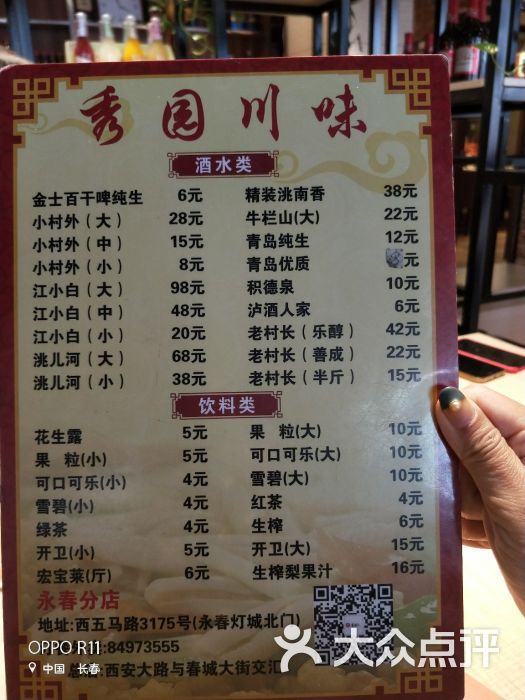 秀园川味
酒水类
金士百干啤纯生 6元 精装洮南香 38元
小村外（大） 28元 牛栏山(大) 22元
小村外（中） 15元 青岛纯生 12元
小村外（小） 8元 青岛优质 元
江小白（大） 98元 积德泉 10元
江小白（中） 48元 泸酒人家 6元
江小白（小） 20元 老村长（乐醇） 42元
洮儿河（大） 68元 老村长（善成） 22元
洮儿河（小） 38元 老村长（半斤） 15元
饮料类
花生露 5元 果 粒(大) 10元
果 粒(小) 5元 可口可乐(大) 10元
可口可乐(小) 4元 雪碧(大) 10元
雪碧(小) 4元 红茶 4元
绿茶 4元 生榨 6元
开卫(小) 5元 开卫(大) 15元
宏宝莱(厅) 6元 生榨梨果汁 16元
永春分店
地址:西五马路3175号(永春灯城北门)
:84973555
西安大路与春城大街交汇
OPPO R11
中国 长春
大众点评